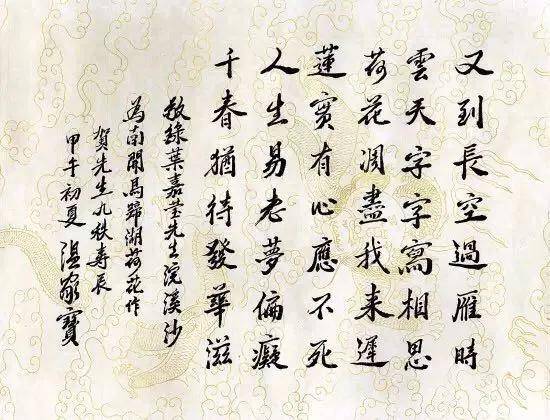 又到長空過雁時
雲天字字寫相思
荷花凋盡我来遲
蓮實有心應不死
人生易老夢偏癡
千春猶待發華滋
敬録葉嘉莹先生浣溪沙
為南開馬蹄湖荷花作
賀先生九秩寿辰
甲午初夏 温家寶